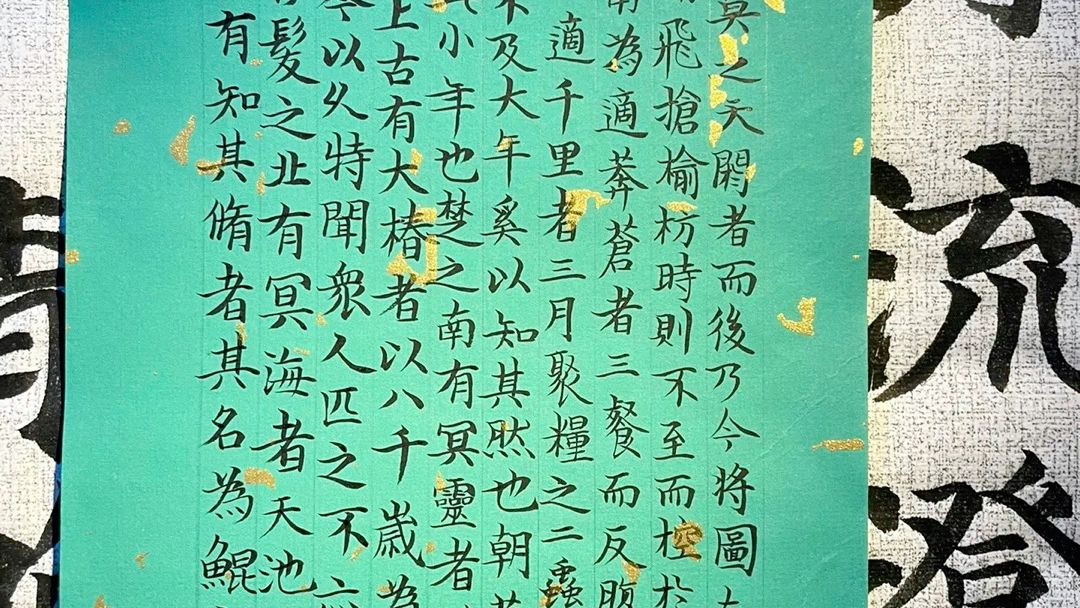 流澄
莫之夭閼者而後乃今將圖
飛搶榆枋時則不至而控於
南為適莽蒼者三餐而反腹
適千里者三月聚糧之二蟲
不及大年奚以知其然也朝
小年也楚之南有冥靈者
上古有大椿者以八千歲為
今以久特聞眾人匹之不
髮之北有冥海者天池
有知其脩者其名為鯤